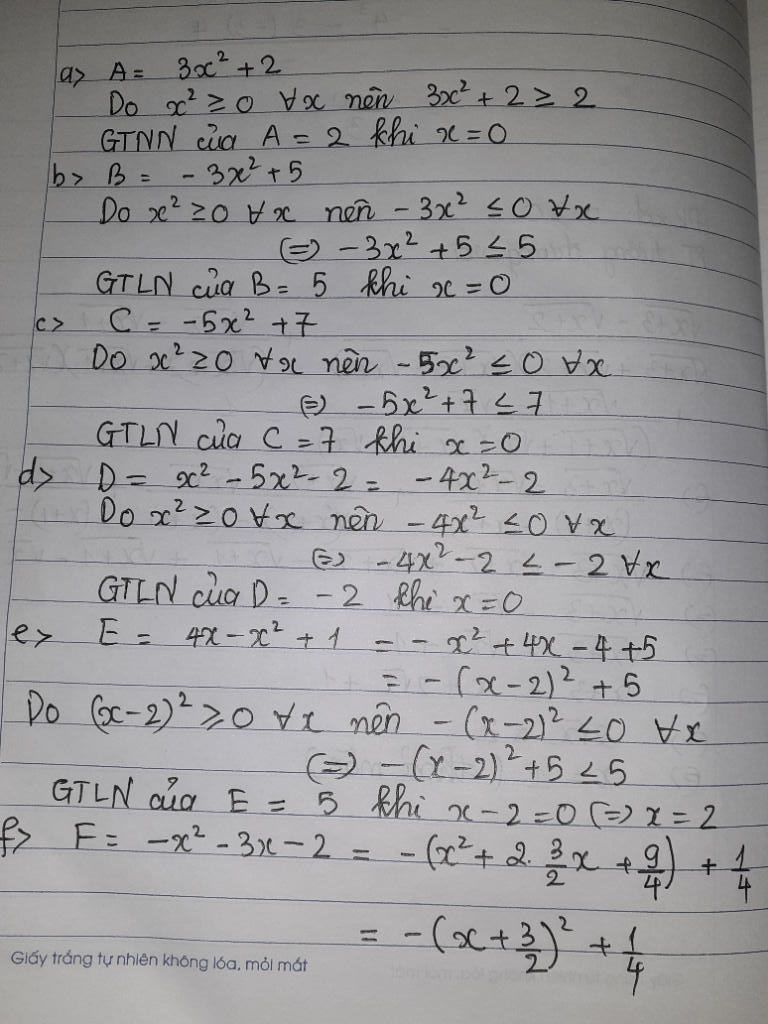 a> A = 3x² + 2
Do x² ≥ 0 ∀x nên 3x² + 2 ≥ 2
GTNN của A = 2 khi x = 0
b> B = - 3x² + 5
Do x² ≥ 0 ∀x nên - 3x² ≤ 0 ∀x
(=) - 3x² + 5 ≤ 5
GTLN của B = 5 khi x = 0
c> C = -5x² + 7
Do x² ≥ 0 ∀x nên - 5x² ≤ 0 ∀x
(=) -5x² + 7 ≤ 7
GTLN của C = 7 khi x = 0
d> D = x² - 5x² - 2 = - 4x² - 2
Do x² ≥ 0 ∀x nên - 4x² ≤ 0 ∀x
(=) -4x² - 2 ≤ - 2 ∀x
GTLN của D = - 2 khi x = 0
e> E = 4x - x² + 1 = - x² + 4x - 4 + 5
= - (x - 2)² + 5
Do (x-2)² ≥ 0 ∀x nên - (x-2)² ≤ 0 ∀x
(=) -(x-2)² + 5 ≤ 5
GTLN của E = 5 khi x - 2 = 0 (=) x = 2
f> F = -x² - 3x - 2 = - (x² + 2. 3/2 x + 9/4) + 1/4
= - (x + 3/2)² + 1/4
Giấy trắng tự nhiên không lóa, mỏi mắt